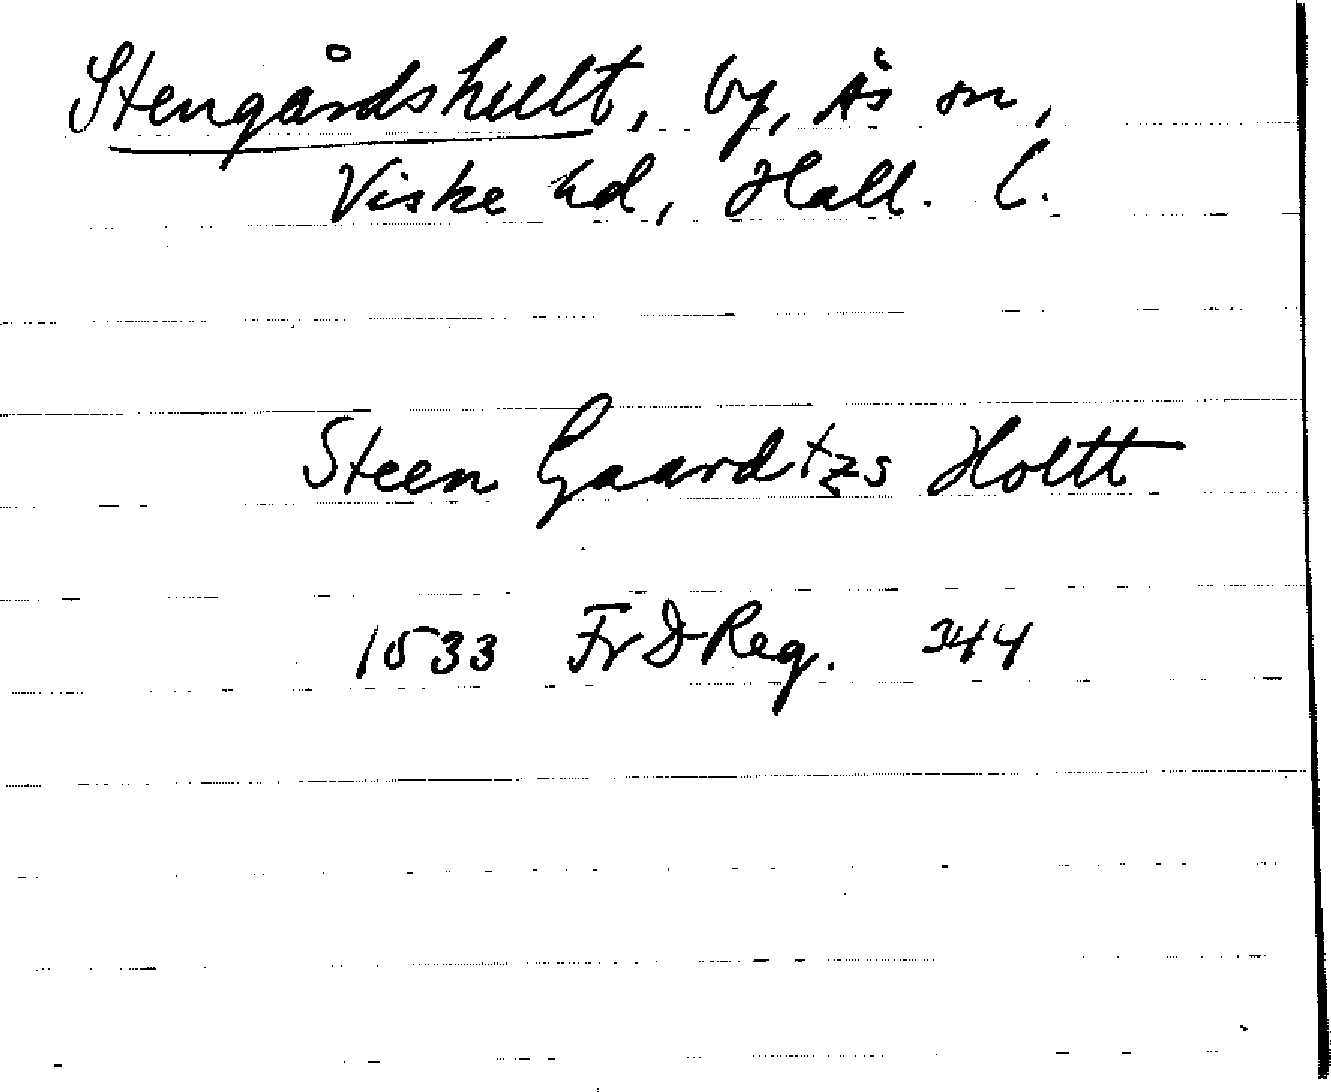 Stengårdshult, by, Ås sn,
Viske hd, Hall. l.
Steen Gaardtzs Holtt
1533 FrDReg. 344